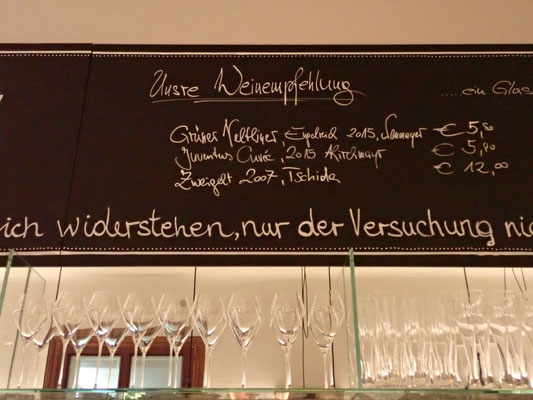 Unsre Weinempfehlung
.....ein Glas
Grüner Veltliner 2015, € 5,80
Juventus Cuvé, 2015 Kirchmayr € 5,90
Zweigelt 2007, Tschida € 12,00
ich widerstehen, nur der Versuchung nic